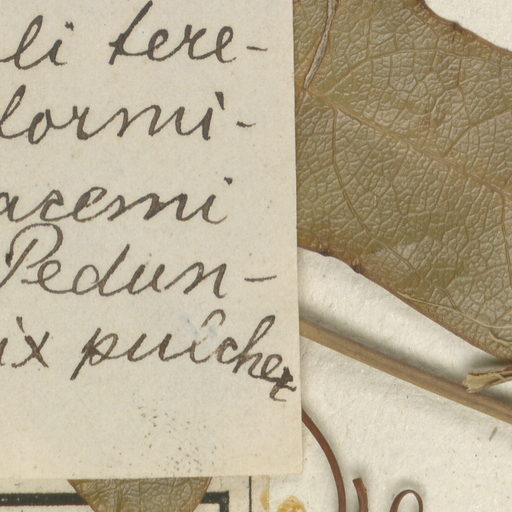 li tere-
formi-
acemi
Pedun-
ix pulcher